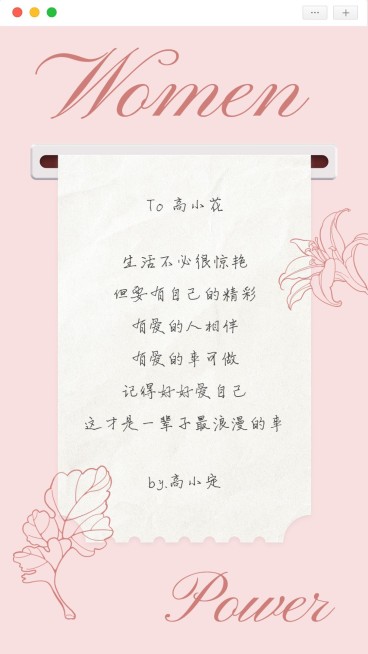 Women
To 高小花
生活不必很惊艳
但要有自己的精彩
有爱的人相伴
有爱的事可做
记得好好爱自己
这才是一辈子最浪漫的事
by.高小定
Power